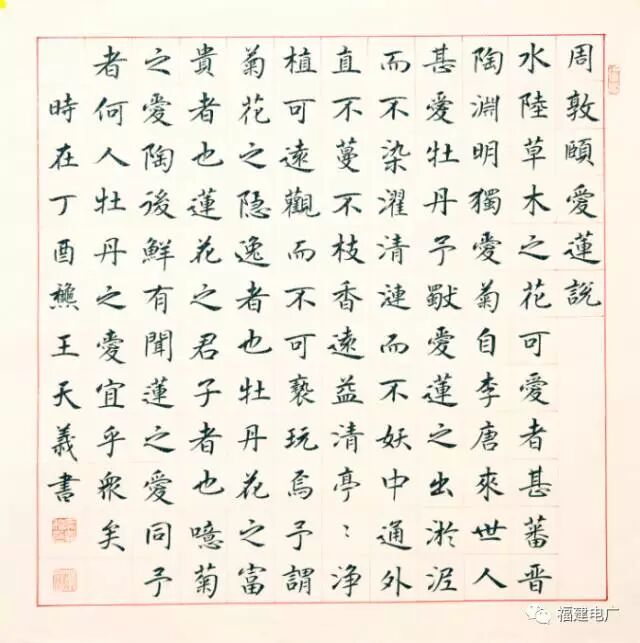 周敦頤愛蓮說
水陸草木之花可愛者甚蕃晋
陶淵明獨愛菊自李唐來世人
甚愛牡丹予愛蓮之出淤泥
而不染濯清漣而不妖中通外
直不蔓不枝香遠益清亭〻浄
植可遠觀而不可褻玩焉予謂
菊花之隐逸者也牡丹花之富
貴者也蓮花之君子者也噫菊
之愛陶後鮮有聞蓮之愛同予
者何人牡丹之愛宜乎眾矣
時在丁酉樵王天義書
福建电广